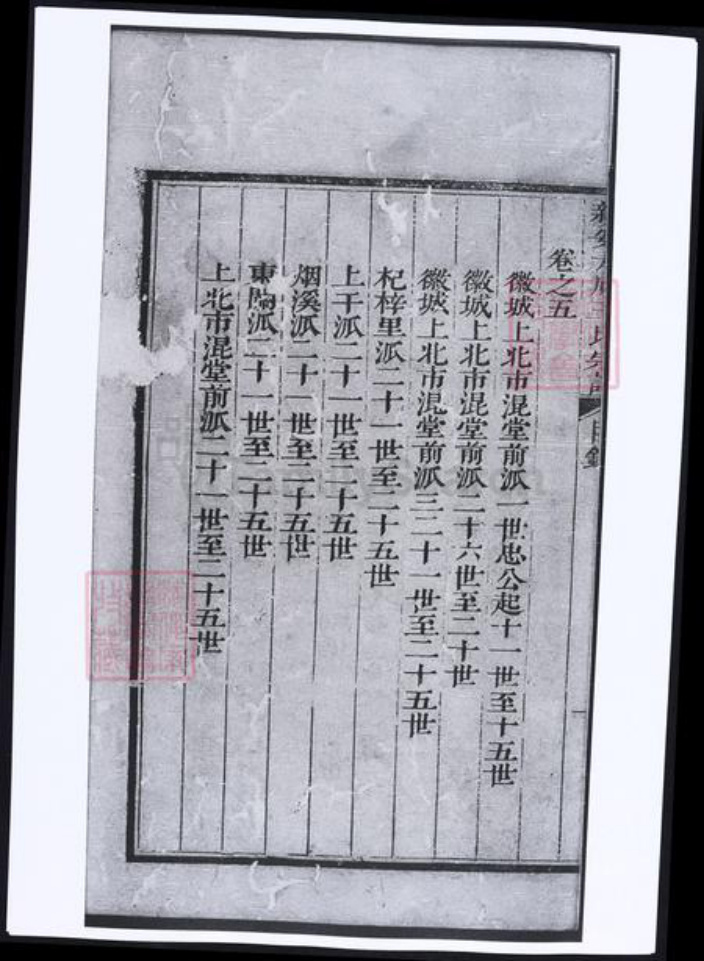 新安大 氏宗 目錄
卷之五
徽城上北市混堂前派一世忠公起十一世至十五世
徽城上北市混堂前派二十六世至二十世
徽城上北市混堂前派三二十一世至二十五世
杞梓里派二十一世至二十五世
上干派二十一世至二十五世
烟溪派二十一世至二十五世
東 派二十一世至二十五世
上北市混堂前派二十一世至二十五世